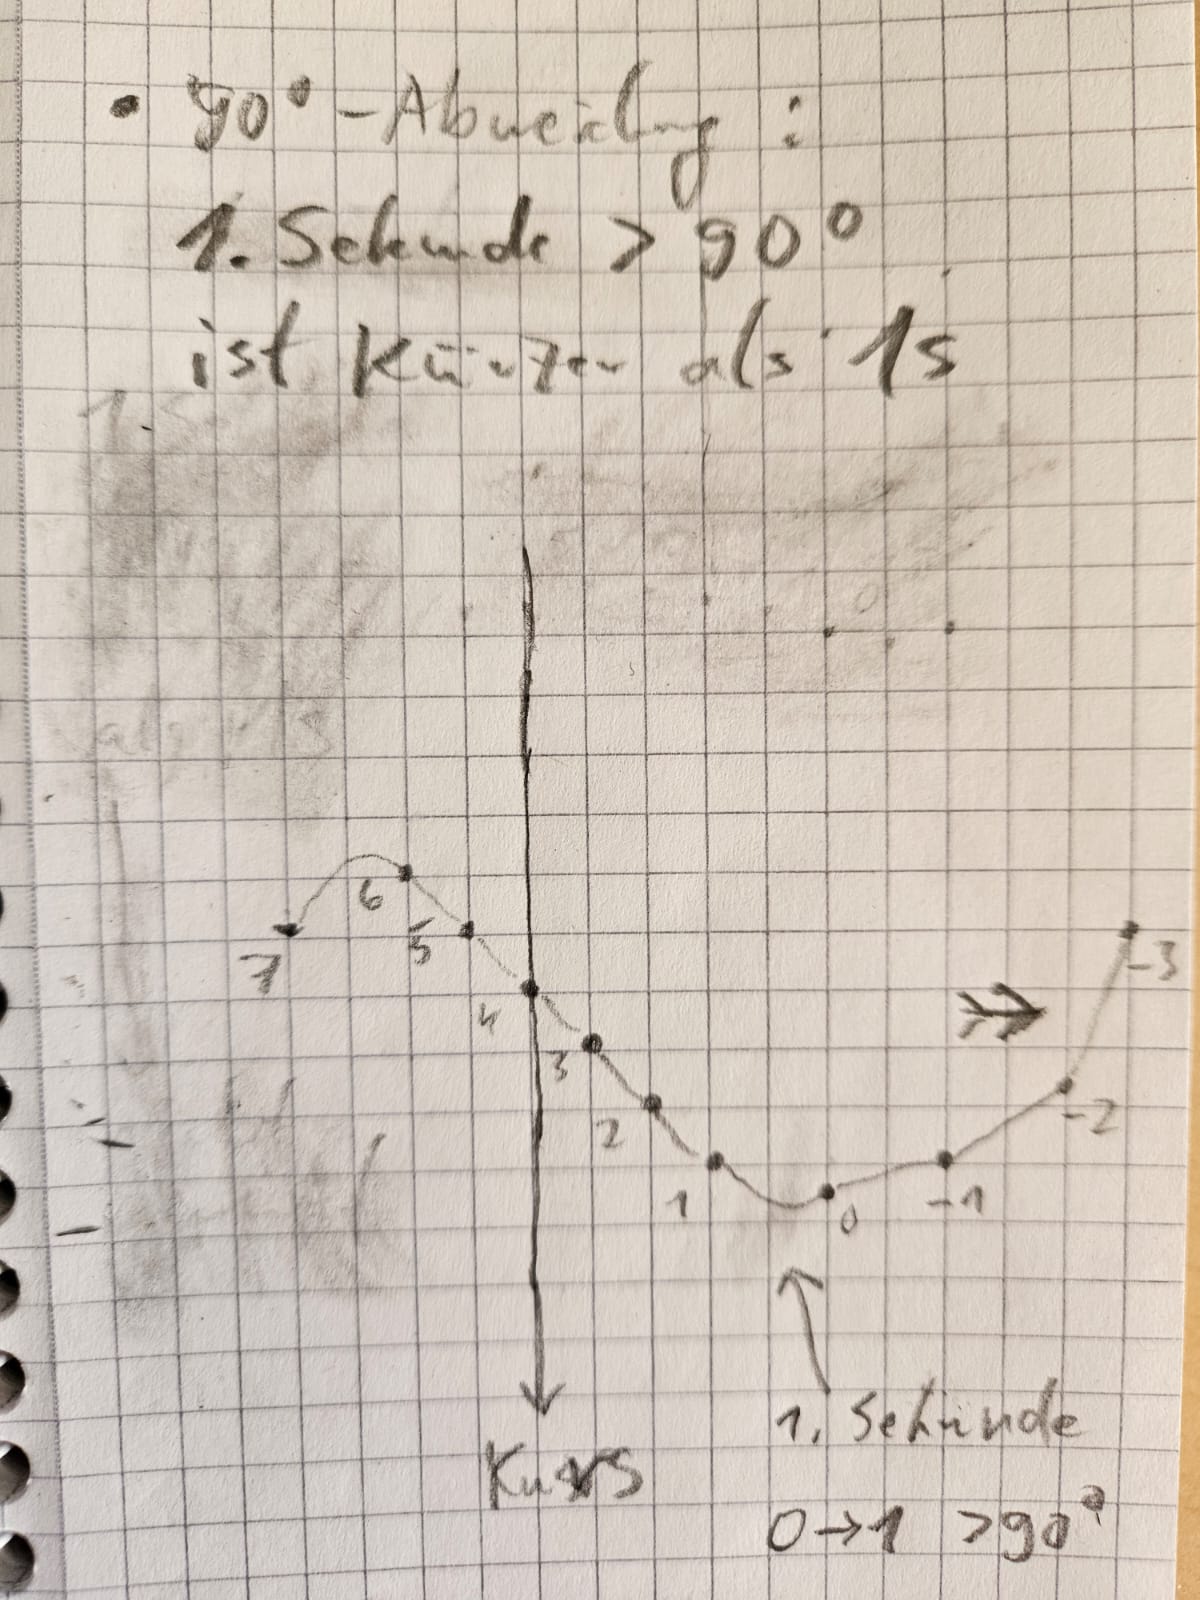 • 90°-Abweichung:
1. Sekunde > 90°
ist kürzer als 1s
6
7
5
-3
4
3
-2
2
1
0
-1
1. Sekunde
Kurs
0→1 >90°